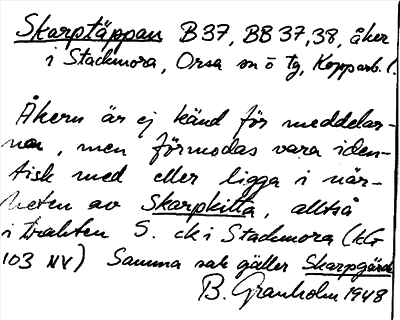 Skarptäppan B37, BB37,38, åker
i Stackmora, Orsa sn ö tg, Kopparb. l.
Åkern är ej känd för meddelar-
na, men förmodas vara iden-
tisk med eller ligga i när-
heten av Skarpkitta, alltså
i trakten S. ck i Stackmora (kG
103 NV) Samma sak gäller Skarpgärd
B. Granholm 1948